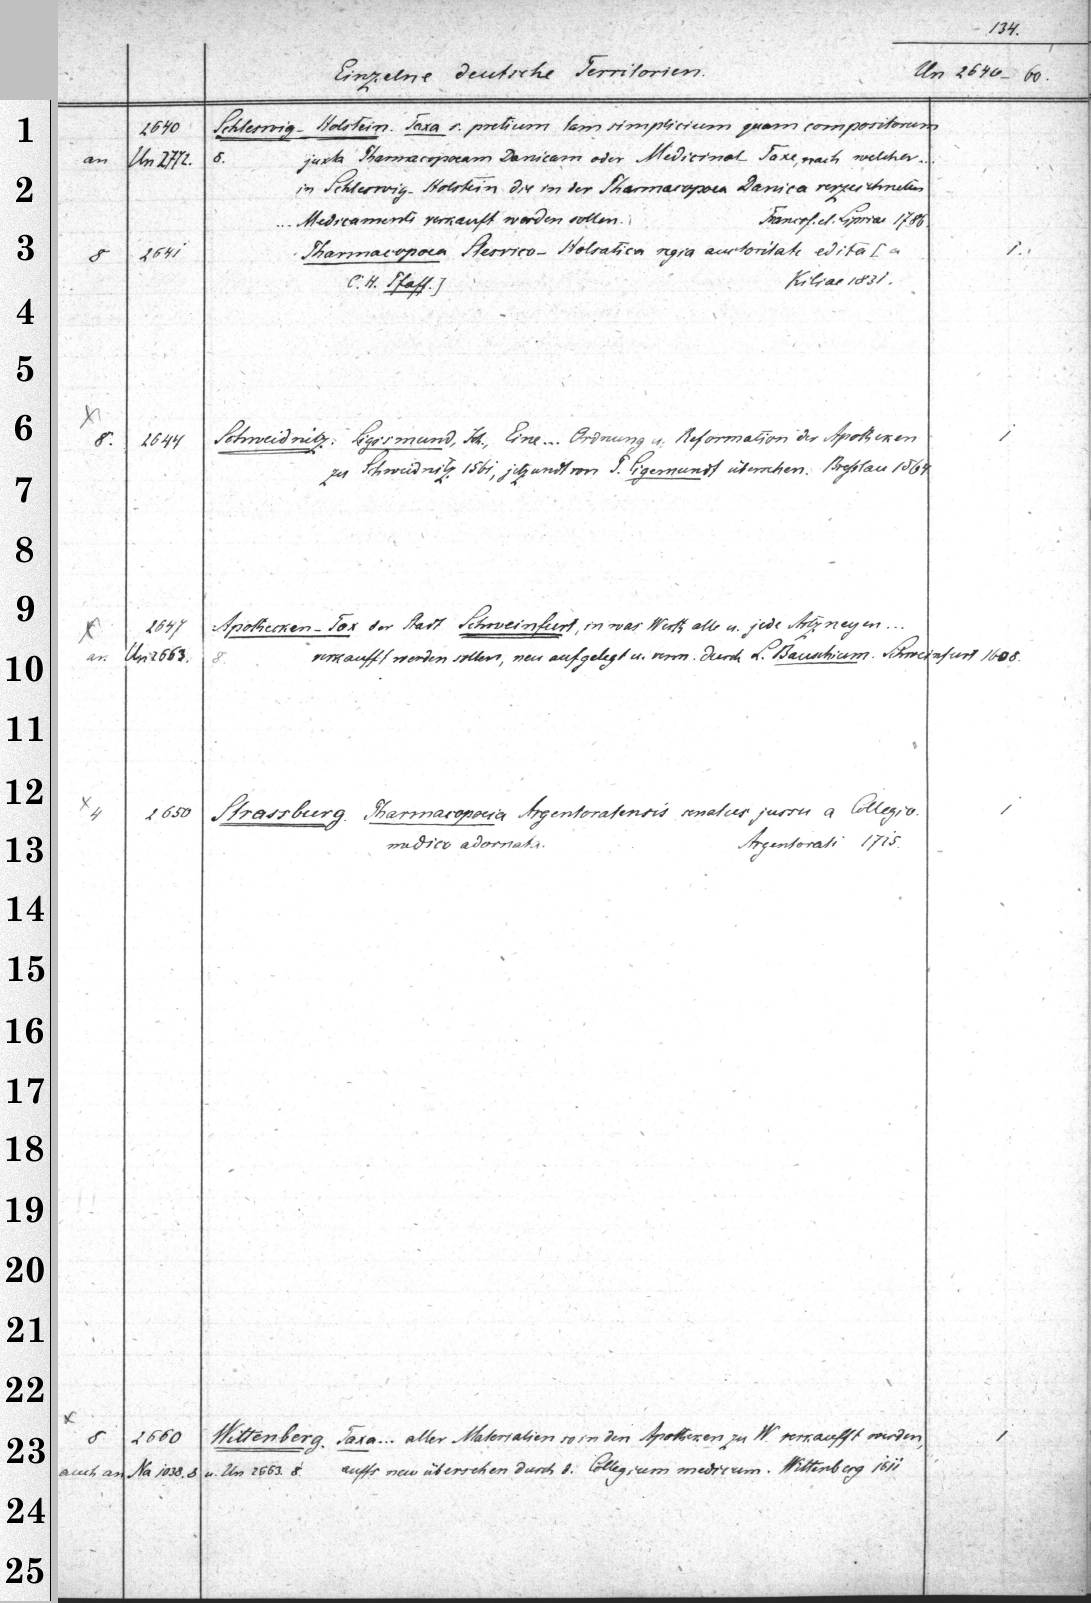 134.
Einzelne deutsche Territorien. Un 2640–60.
1 2640 Schleswig-Holstein. Taxa s. pretium tam simplicium quam compositorum
an Un 2772. 8. juxta Pharmacopoeam Danicam oder Medicinal-Taxe, nach welcher...
2 in Schleswig-Holstein die in der Pharmacopoea Danica verzeichneten
... Medicamente verkauft werden sollen. Francof. et. Lipsiae 1786.
3 8 2641 Pharmacopoea Slesvico-Holsatica regia auctoritate edita [a 1.
C. H. Pfaff.] Kiliae 1831.
4
5
x
6 8. 2644 Schweidnitz. Sigismund, Joh., Eine... Ordnung u. Reformation der Apotheken 1
7 zu Schweidnitz 1561, jetzundt von J. Sigemundt übersehen. Breslau 1564
8
9 x 2647 Apothecken-Tax der Stadt Schweinfurt, in was Werth alle u. jede Artzneyen...
10 an Un 2663. 8 verkaufft werden sollen, neu aufgelegt u. verm. durch L. Bauschium. Schweinfurt 1608.
11
12 x 4 2650 Strassburg. Pharmacopoeia Argentoratensis senatus jussu a Collegio 1
13 medico adornata. Argentorati 1715.
14
15
16
17
18
19
20
21
22
x
23 8 2660 Wittenberg. Taxa... aller Materialien so in den Apotheken zu W. verkaufft werden, 1
auch an Na 1038. 8 u. Un 2663. 8. auffs neu übersehen durch d. Collegium medicum. Wittenberg 1611
24
25